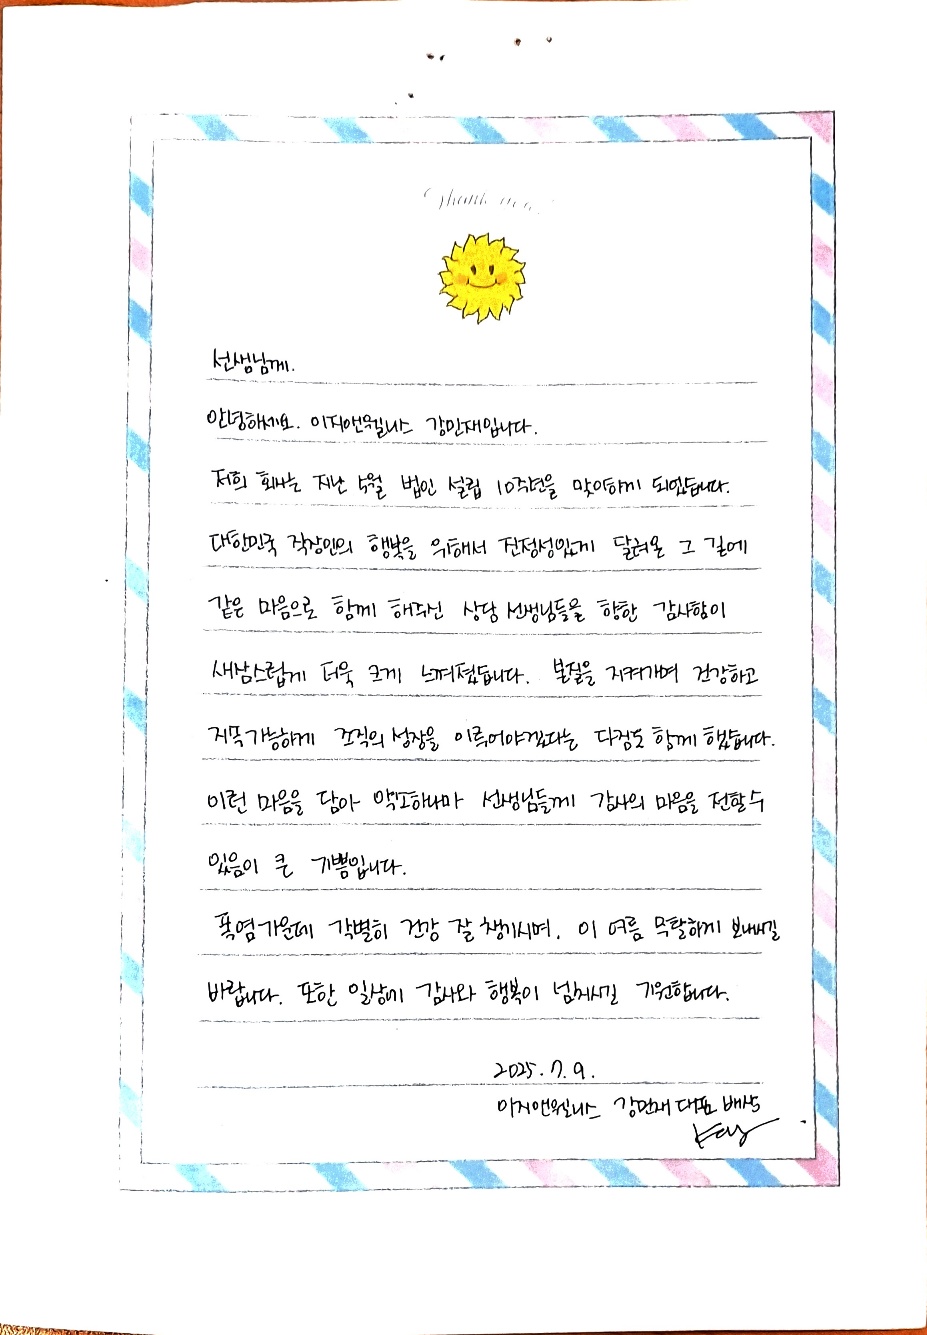 Thank you
선생님께.
안녕하세요. 이지앤웰니스 강민재입니다.
저희 회사는 지난 5월 법인 설립 10주년을 맞이하게 되었습니다.
대한민국 직장인의 행복을 위해서 진정성있게 달려온 그 길에
같은 마음으로 함께 해주신 상담 선생님들을 향한 감사함이
새삼스럽게 더욱 크게 느껴졌습니다. 본질을 지켜가며 건강하고
지속가능하게 조직의 성장을 이루어야겠다는 다짐도 함께 했습니다.
이런 마음을 담아 약소하나마 선생님들께 감사의 마음을 전할 수
있음이 큰 기쁨입니다.
폭염가운데 각별히 건강 잘 챙기시며, 이 여름 무탈하게 보내시길
바랍니다. 또한 일상에 감사와 행복이 넘치시길 기원합니다.
2025. 7. 9.
이지앤웰니스 강민재 대표 배상